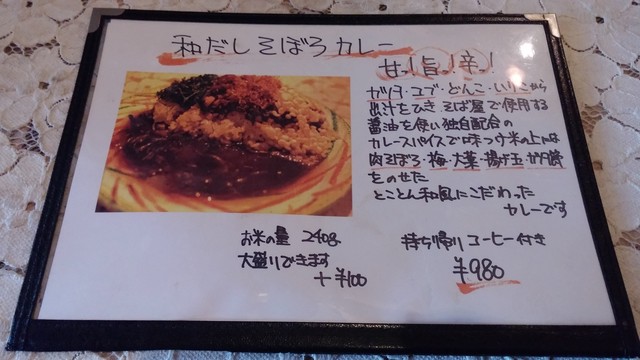 和だしそぼろカレー
甘っ!旨っ!辛っ!
ガツオ・コブ・どんこ・いりこから
出汁をひき そば屋で使用する
醤油を使い独自配合の
カレースパイスで味つけ 米の上には
肉そぼろ・梅・大葉・揚げ玉・ガツオ節
をのせた
とことん和風にこだわった
カレーです
お米の量 240g
大盛りできます
+¥100
持ち帰りコーヒー付き
¥980